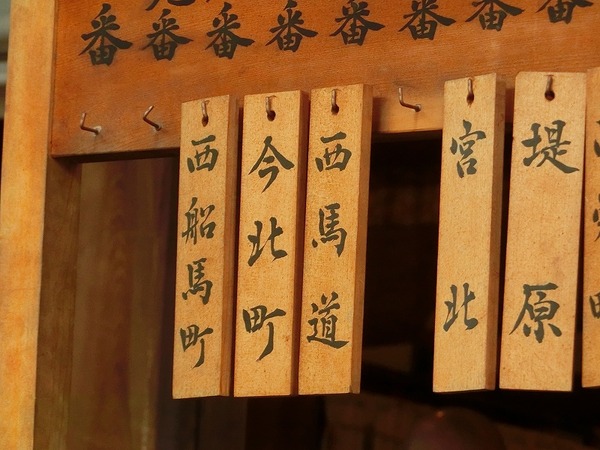 番 番 番 番 番 番 番 番
堤原
宮北
西馬道
今北町
西船馬町